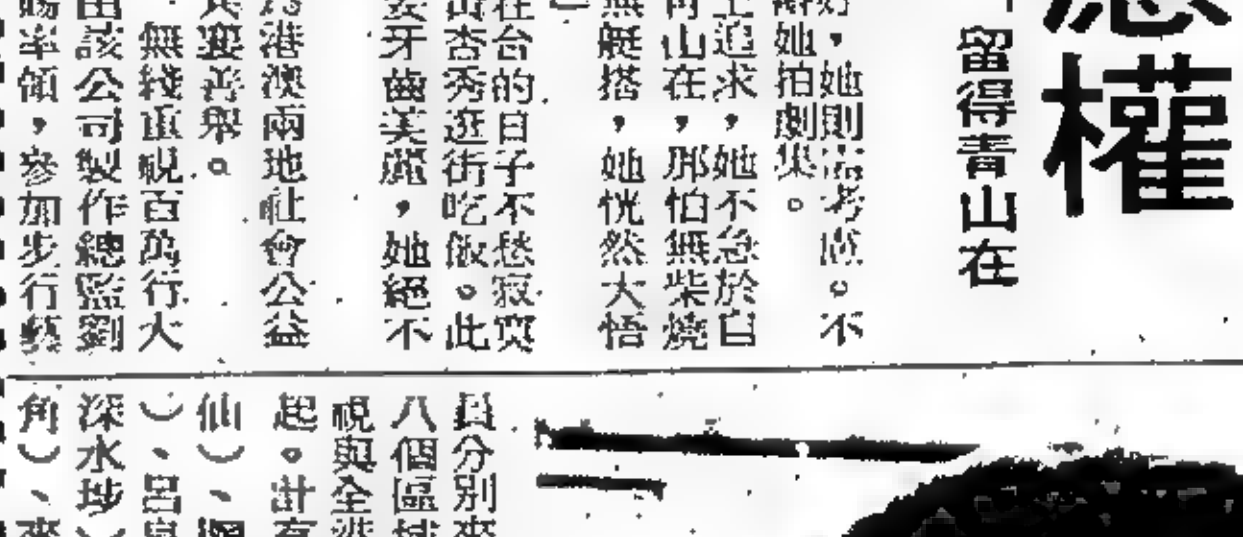 權
留得青山在
好，她則需考慮。不
辭她拍劇集。
上追求，她不急於自
青山在，那怕無柴燒
無艇搭，她恍然大悟
在台的日子不愁寂寞
杏秀逛街吃飯。此
牙齒美麗，她絕不
港澳兩地社會公益
襄善舉。
無綫重視百萬行大
由該公司製作總監劉
率領，參加步行籌
員分別來
八個區域
視與全港
起。計有
仙）、
）、呂
深水埗）
角）、來